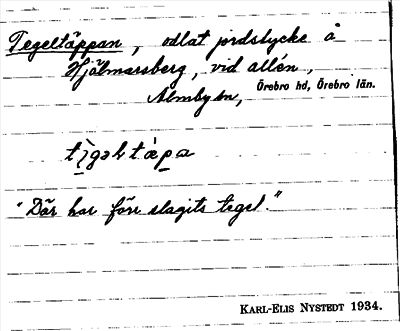 Tegeltäppan, odlat jordstycke å
Hjälmarsberg, vid allén,
Almby sn, Örebro hd, Örebro län.
"Där har förr slagits tegel."
KARL-ELIS NYSTEDT 1934.